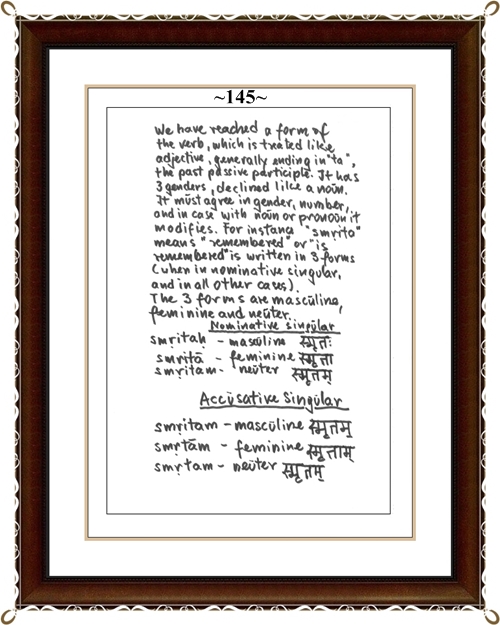 ~145~
We have reached a form of
the verb, which is treated like
adjective, generally ending in "ta",
the past passive participle. It has
3 genders, declined like a noūn.
It mūst agree in gender, number,
and in case with noūn or pronoūn it
modifies. For instanc "smrito"
means "remembered" or "is
remembered" is written in 3 forms
(when in nominative singūlar,
and in all other cases).
The 3 forms are mascūline,
feminine and neūter.
Nominative singūlar
smṛitaḥ - mascūline स्मृतः
smṛitā - feminine स्मृता
smṛitam - neūter स्मृतम्
Accūsative Singūlar
smṛitam - mascūline स्मृतम्
smṛtām - feminine स्मृताम्
smṛtam - neūter स्मृतम्